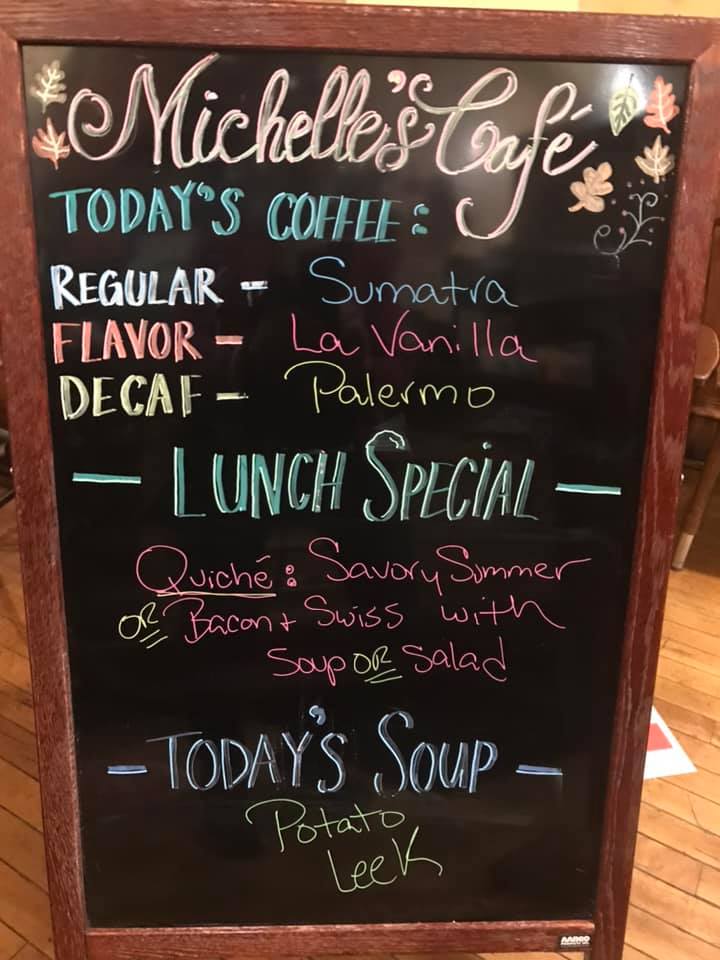 Michelle's Café
TODAY'S COFFEE:
REGULAR - Sumatra
FLAVOR - La Vanilla
DECAF - Palermo
- LUNCH SPECIAL -
Quiché: Savory Summer
OR Bacon + Swiss with
Soup OR Salad
- TODAY'S SOUP -
Potato
Leek
AARCO